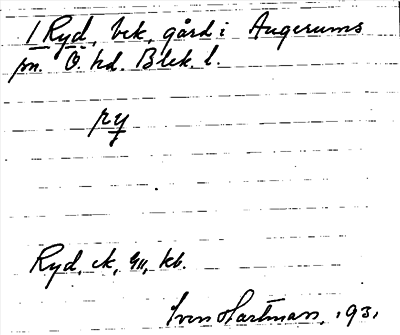 1 Ryd, bek. gård i Augerums
sn. Ö. hd. Blek. l.
ry
Ryd, ek, GU, kb.
Sven Hartman, 1931